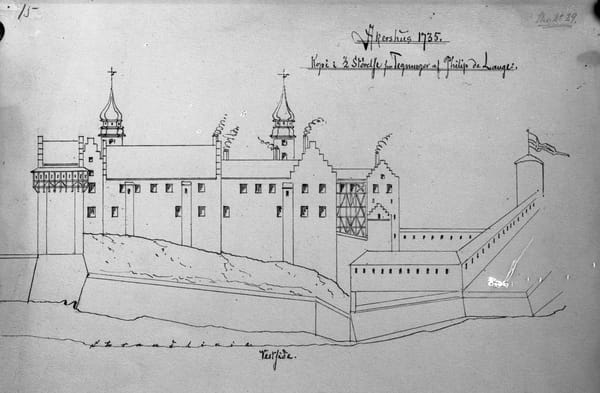 15
Akershus 1735.
Kopi i ½ Störelse fra Tegninger af Philip de Lange.
Strandlinie
Vestside.